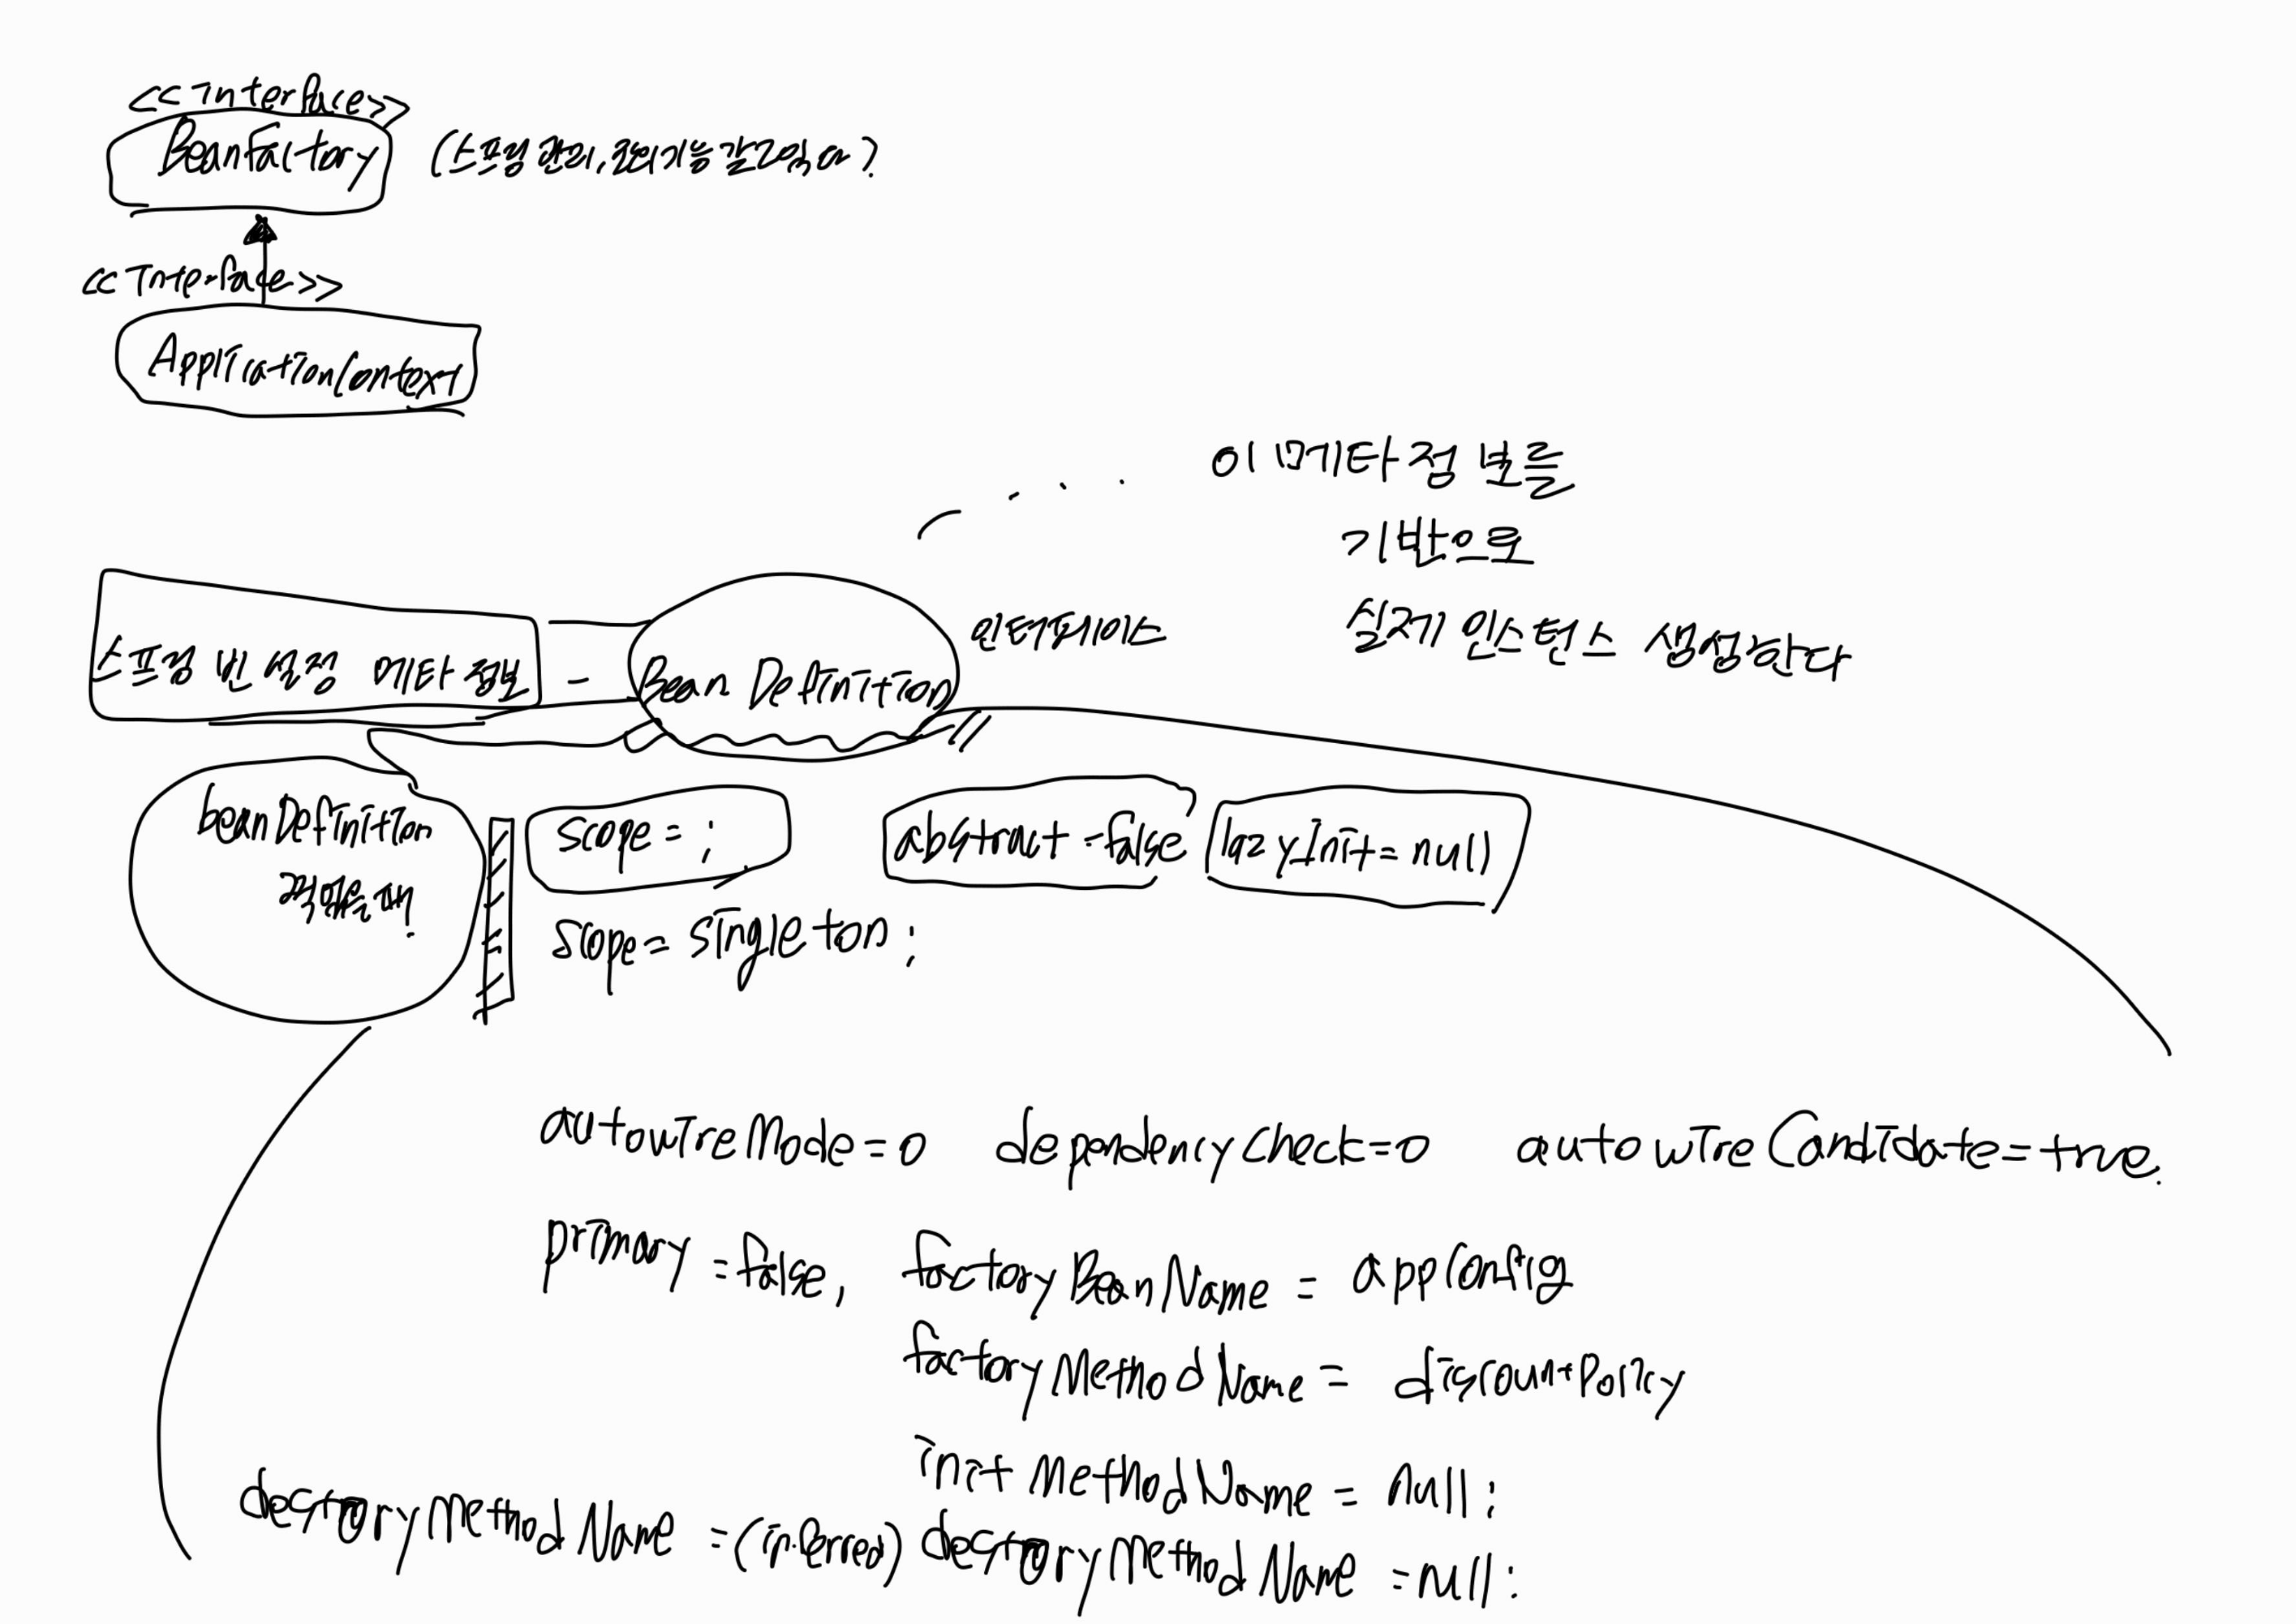 <<Interface>>
BeanFactory
(스프링 관리, 조회 기능
<<Interface>>
ApplicationContext
이 메타 정보를
기반으로
실제 인스턴스 생성한다
스프링 빈 설정 메타 정보 = Bean Definition
인터페이스
beanDefinition
scope = ;
abstract = false
lazyInit = null
scope = singleton ;
autowireMode = 0 dependencyCheck = 0 autowireCandidate = true.
primary = false, factoryBeanName = appConfig
factoryMethodName = discountPolicy
initMethodName = null ;
destroryMethodName = (inferred) destroryMethodName = null ;